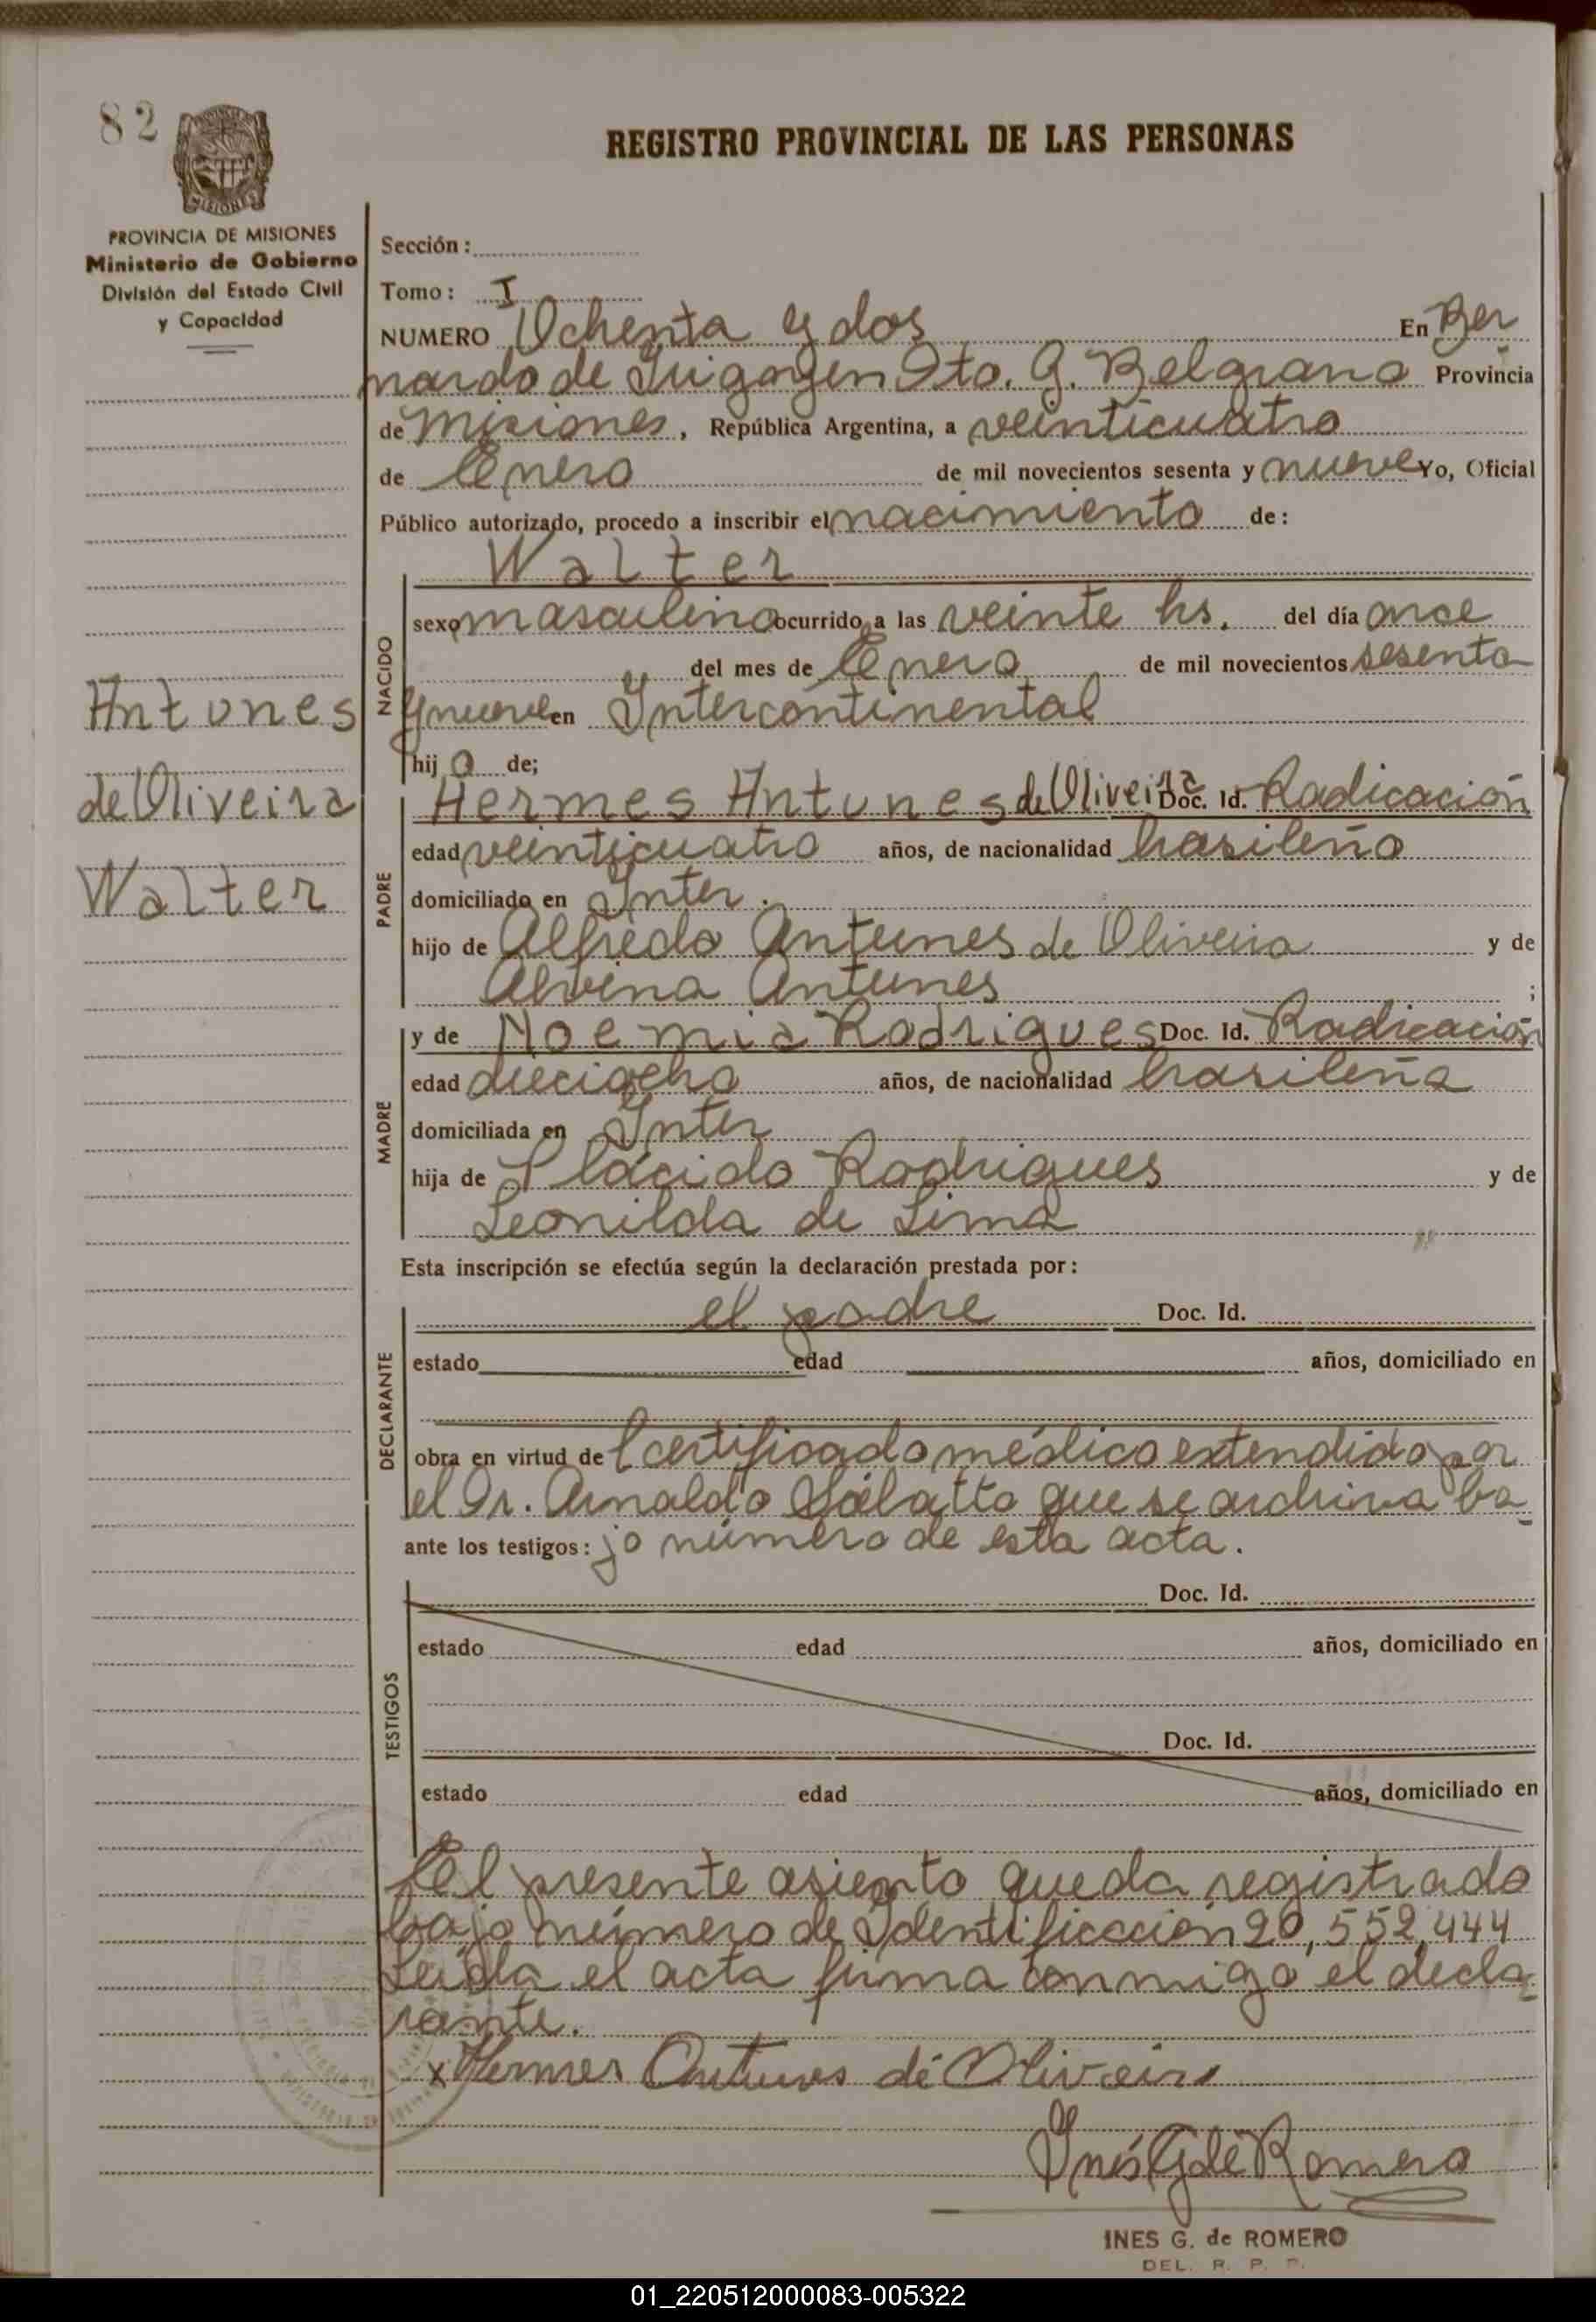 82
REGISTRO PROVINCIAL DE LAS PERSONAS
MISIONES
PROVINCIA DE MISIONES
Ministerio de Gobierno
División del Estado Civil
y Capacidad
Sección:
Tomo: I
NUMERO Ochenta y dos En Ber
nardo de Irigoyen Dto. G. Belgrano Provincia
de Misiones, República Argentina, a veinticuatro
de Enero de mil novecientos sesenta y nueve Yo, Oficial
Público autorizado, procedo a inscribir el nacimiento de:
Walter
NACIDO
sexo masculino ocurrido a las veinte hs. del día once
del mes de Enero de mil novecientos sesenta
y nueve en Intercontinental
hijo de;
Antunes
de Oliveira
Walter
PADRE
Hermes Antunes de Oliveira Doc. Id. Radicación
edad veinticuatro años, de nacionalidad brasileño
domiciliado en Inter.
hijo de Alfredo Antunes de Oliveira y de
Alvina Antunes ;
MADRE
y de Noemia Rodrigues Doc. Id. Radicación
edad dieciocho años, de nacionalidad brasileña
domiciliada en Inter
hija de Plácido Rodrigues y de
Leonilda de Lima
Esta inscripción se efectúa según la declaración prestada por:
DECLARANTE
el padre Doc. Id.
estado edad años, domiciliado en
obra en virtud de l certificado médico extendido por
el Dr. Arnaldo que se archiva ba
ante los testigos: jo número de esta acta.
TESTIGOS
Doc. Id.
estado edad años, domiciliado en
Doc. Id.
estado edad años, domiciliado en
El presente asiento queda registrado
bajo número de Identificación 20,552,444
Leída el acta firma conmigo el decla
rante.
x Hermes Antunes de Oliveira
Inés G de Romero
INES G. de ROMERO
DEL. R. P. P.
01_220512000083-005322